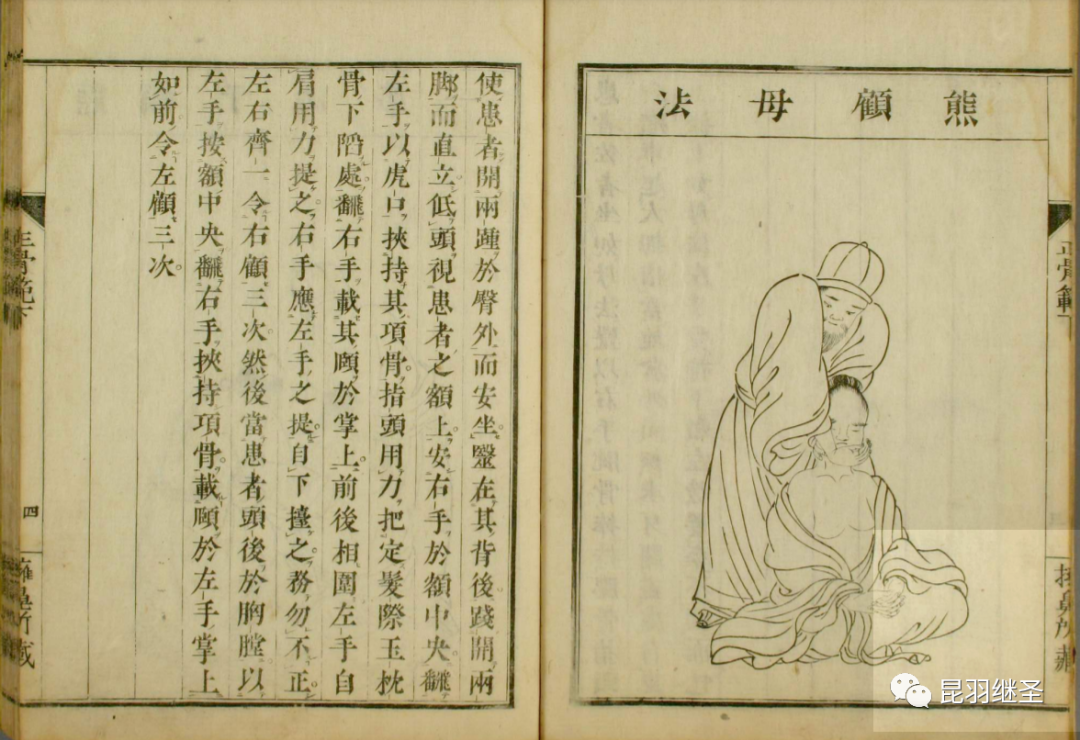 熊顧母法
正骨範
使患者開兩踵於臀外而安坐。毉在其背後踐開兩
脚而直立。低頭視患者之額上。安右手於額中央。翻
左手以虎口挾持其項骨。指頭用力把定髮際玉枕
骨下陷處。翻右手載其頤於掌上。前後相圍左手自
肩用力提之。右手應左手之提自下擡之。務勿不正
左右齊一令右顧三次。然後當患者頭後於胸膛以
左手按額中央翻右手挾持項骨。載頤於左手掌上
如前令左顧三次。
正骨範下
四
昆羽继圣